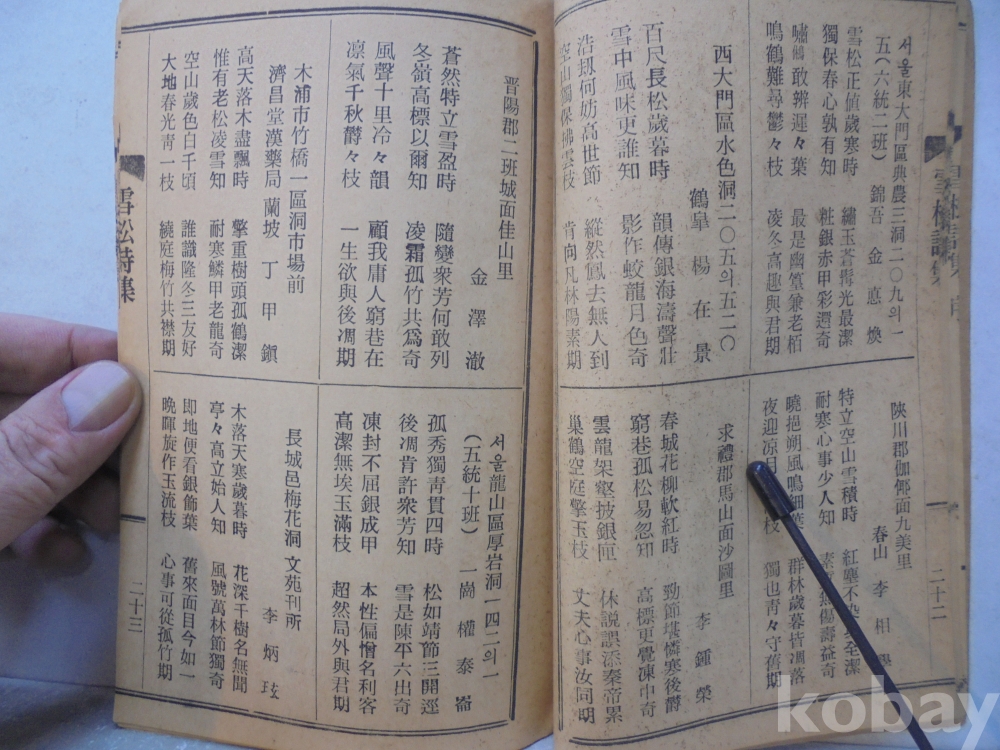 서울東大門區典農三洞二〇九의一
五(六統二班) 錦吾 金惪煥
雪松正値歲寒時
獨保春心孰有知
嘯鵂敢辨遲々葉 最是幽篁兼老栢
鳴鶴難尋鬱々枝 凌冬高趣與君期
粧銀赤甲彩還奇
西大門區水色洞二〇五의五二〇
鶴皐 楊在景
百尺長松歲暮時 韻傳銀海濤聲壯
雪中風味更誰知 影作蛟龍月色奇
浩刼何妨高世節 縱然鳳去無人到
空山獨保拂雲枝 肯向凡林陽素期
陜川郡伽倻面九美里
春山 李相
特立空山雪積時 紅塵不染
耐寒心事少人知 壽益奇
曉挹朔風鳴細葉 群林歲暮皆凋落
夜迎凉月 枝 獨也靑々守舊期
求禮郡馬山面沙圖里
李鍾榮
春城花柳軟紅時 勁節堪憐寒後欝
窮巷孤松易忽知 高標更覺凍中奇
雲龍架壑披銀甲 休説誤添秦帝累
巢鶴空庭擎玉枝 丈夫心事汝同期
二十二
晋陽郡二班城面佳山里
金澤澈
蒼然特立雪盈時 隨變衆芳何敢列
冬嶺高標以爾知 凌霜孤竹共爲奇
風聲十里冷々韻 顧我庸人窮巷在
凛氣千秋欝々枝 一生欲與後凋期
木浦市竹橋一區洞市場前
濟昌堂漢藥局 蘭坡 丁甲鎭
高天落木盡飄時 擎重樹頭孤鶴潔
惟有老松凌雪知 耐寒鱗甲老龍奇
空山歲色白千頃 誰識隆冬三友好
大地春光靑一枝 繞庭梅竹共襟期
서울龍山區厚岩洞一四二의一
(五統十班) 一崗 權泰崙
孤秀獨靑貫四時 松如靖節三開逕
後凋肯許衆芳知 雪是陳平六出奇
凍封不屈銀成甲 本性偏憎名利客
高潔無埃玉滿枝 超然局外與君期
長城邑梅花洞 文苑刊所
李炳玹
木落天寒歲暮時 花深千樹名無聞
亭々高立始人知 風號萬林節獨奇
即地便看銀飾葉 舊來面目今如一
晩暉旋作玉流枝 心事可從孤竹期
雪松詩集
二十三
kobay